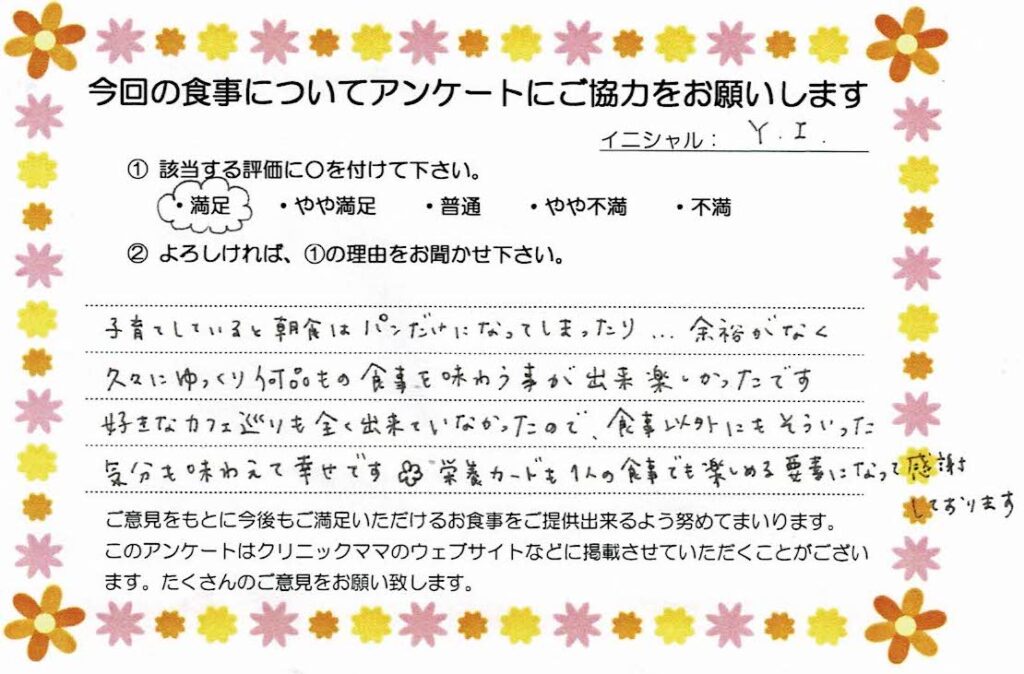 今回の食事についてアンケートにご協力をお願いします
イニシャル： Y.I.
① 該当する評価に〇を付けて下さい。
・満足 ・やや満足 ・普通 ・やや不満 ・不満
② よろしければ、①の理由をお聞かせ下さい。
子育てしていると朝食はパンだけになってしまったり...余裕がなく
久々にゆっくり何品もの食事を味わう事が出来楽しかったです
好きなカフェ巡りも全く出来ていなかったので、食事以外にもそういった
気分も味わえて幸せです 栄養カードも1人の食事でも楽しめる要素になって感謝
しております
ご意見をもとに今後もご満足いただけるお食事をご提供出来るよう努めてまいります。
このアンケートはクリニックママのウェブサイトなどに掲載させていただくことがござい
ます。たくさんのご意見をお願い致します。